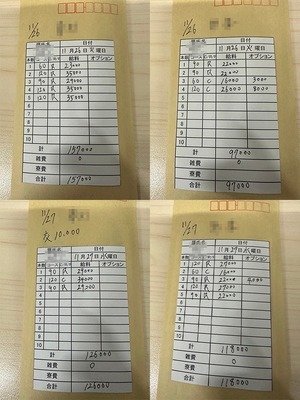 11/26
源氏名 日付
11月26日火曜日
本数 コース 指名 給料 オプション
1 60 R 23000
2 120 R 35000
3 90 R 29000
4 120 R 35000
5 120 R 35000
6
7
8
9
10
計 157000
雑費 0
寮費
合計 157000
11/26
日付
11月26日火曜日
給料 オプション
1 90 R 22000
2 90 R 22000
3 60 C 16000 3000
4 120 C 26000 8000
5
6
7
8
9
10
計 97000
雑費 0
寮費
合計 97000
11/27
交 10.000
源氏名 日付
11月27日水曜日
本数 コース 指名 給料 オプション
1 90 R 29000
2 120 C 34000
3 R 29000
4
5
6
7
8
9
10
計 126000
雑費 0
寮費
合計 126000
11/27
源氏名 日付
11月27日水曜日
本数 コース 指名 給料 オプション
1 120 R
2 60 C
3 R
4 R 4000
5 90 R 22000
6
7
8
9
10
計 118000
雑費 0
寮費
合計 118000